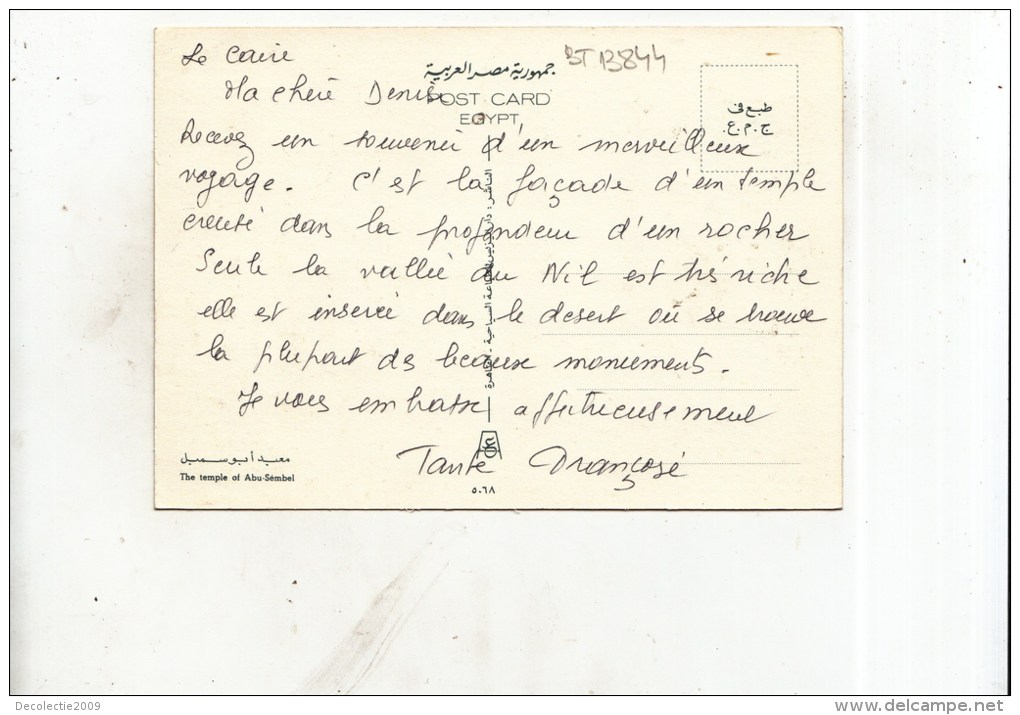 Le Caire
BT B844
جمهورية مصر العربية
Ma chère Denise
POST CARD
EGYPT
طبع فى
ج.م.ع.
Recevez un souvenir d'un merveilleux
voyage. C'est la façade d'un temple
creusé dans la profondeur d'un rocher
Seule la vallée du Nil est très riche
elle est insérée dans le desert où se trouve
la plupart des beaux monuments.
Je vous embrasse affectueusement
Tante
معبد أبو سمبل
The temple of Abu-Sembel
٥٠٦٨
Decolectie2009
www.delcampe.net